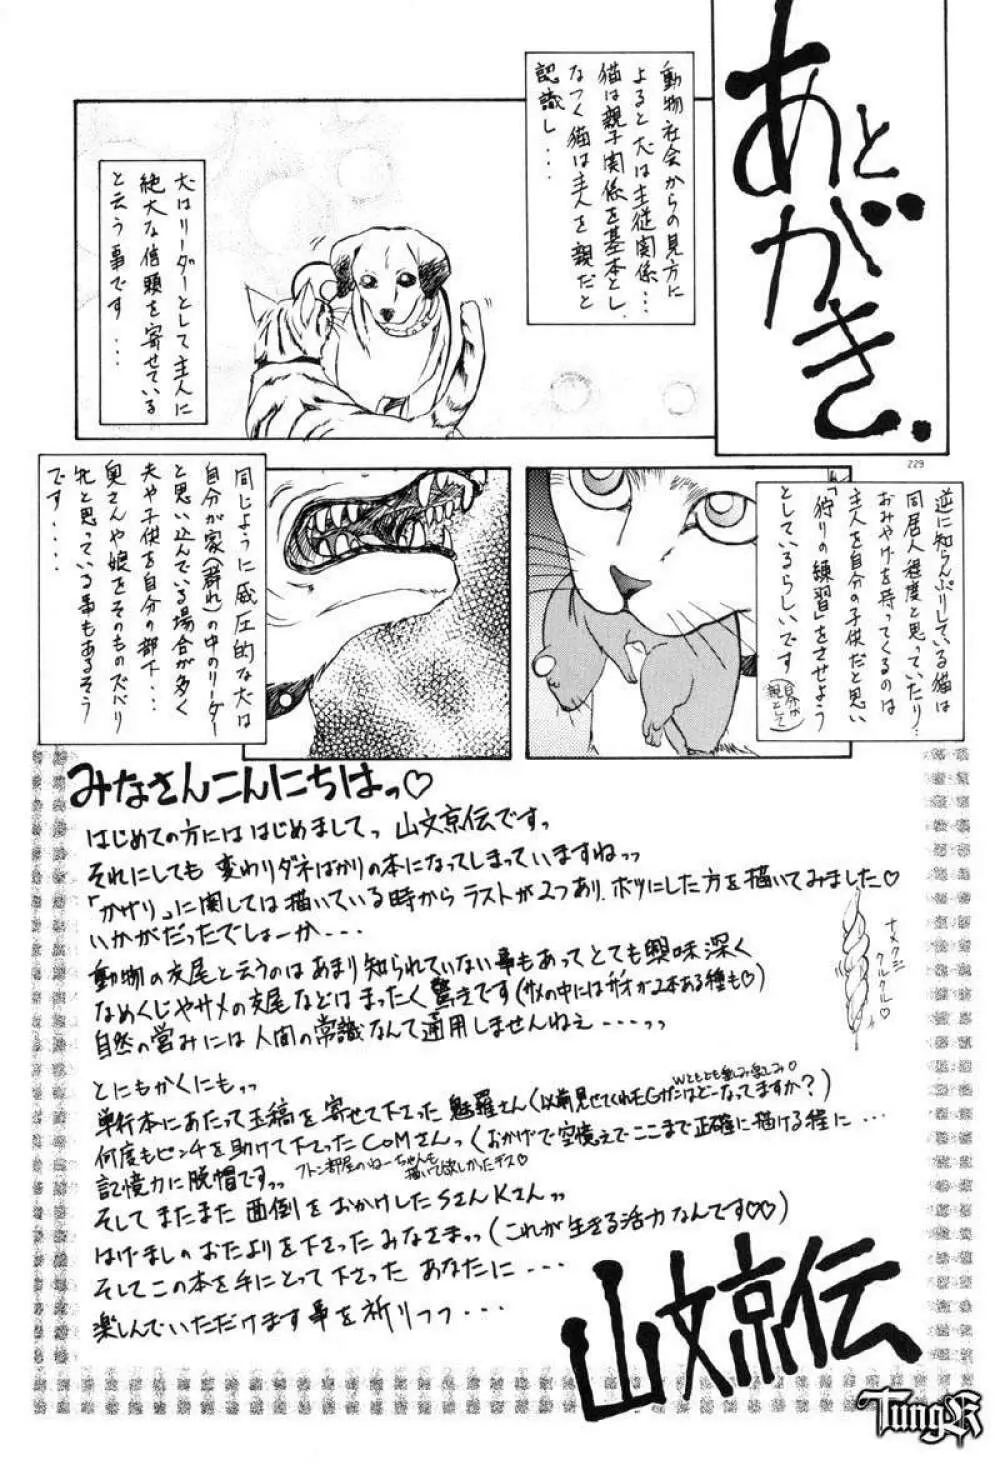 あとがき.
動物社会からの見方に
よると犬は主従関係…
猫は親子関係を基本とし、
なつく猫は主人を親だと
認識し...
犬はリーダーとして主人に
絶大な信頼を寄せている
と云う事です...
229
逆に知らんぷりしている猫は
同居人程度と思っていたり…
おみやげを持ってくるのは
主人を自分の子供だと思い
「狩りの練習」をさせよう
としているらしいです
(自分が親として)
同じように威圧的な犬は
自分が家(群れ)の中のリーダー
と思い込んでいる場合が多く
夫や子供を自分の部下...
奥さんや娘をそのものズバリ
牝と思っている事もあるそう
です....
みなさんこんにちはっ♡
はじめての方にははじめましてっ 山文京伝ですっ
それにしても変わりダネばかりの本になってしまっていますねっっ
「かざり」に関しては描いている時からラストが2つあり、ボツにした方を描いてみました♡
いかがだったでしょーか...
動物の交尾と云うのはあまり知られていない事もあってとても興味深く
なめくじやサメの交尾などはまったく驚きです(サメの中にはが2本ある種も♡)
自然の営みには人間の常識なんて通用しませんねえ...っっ
ナメクジ
クルクル♡
とにもかくにもっっ
単行本にあたって玉稿を寄せて下さった魅羅さん(以前見せてくれたGガンはどーなってますか?)
Wともども楽しみ楽しみ♡
何度もピンチを助けて下さったCOMさんっ(おかげで空憶えでここまで正確に描ける程に...
記憶力に脱帽ですっっ
フトン部屋のねーちゃんも
描いて欲しかったデス♡
そしてまたまた面倒をおかけしたSさんKさんっっ
はげましのおたよりを下さったみなさまっっ(これが生きる活力なんです♡♡)
そしてこの本を手にとって下さったあなたに...
楽しんでいただけます事を祈りつつ...
山文京伝
TungK